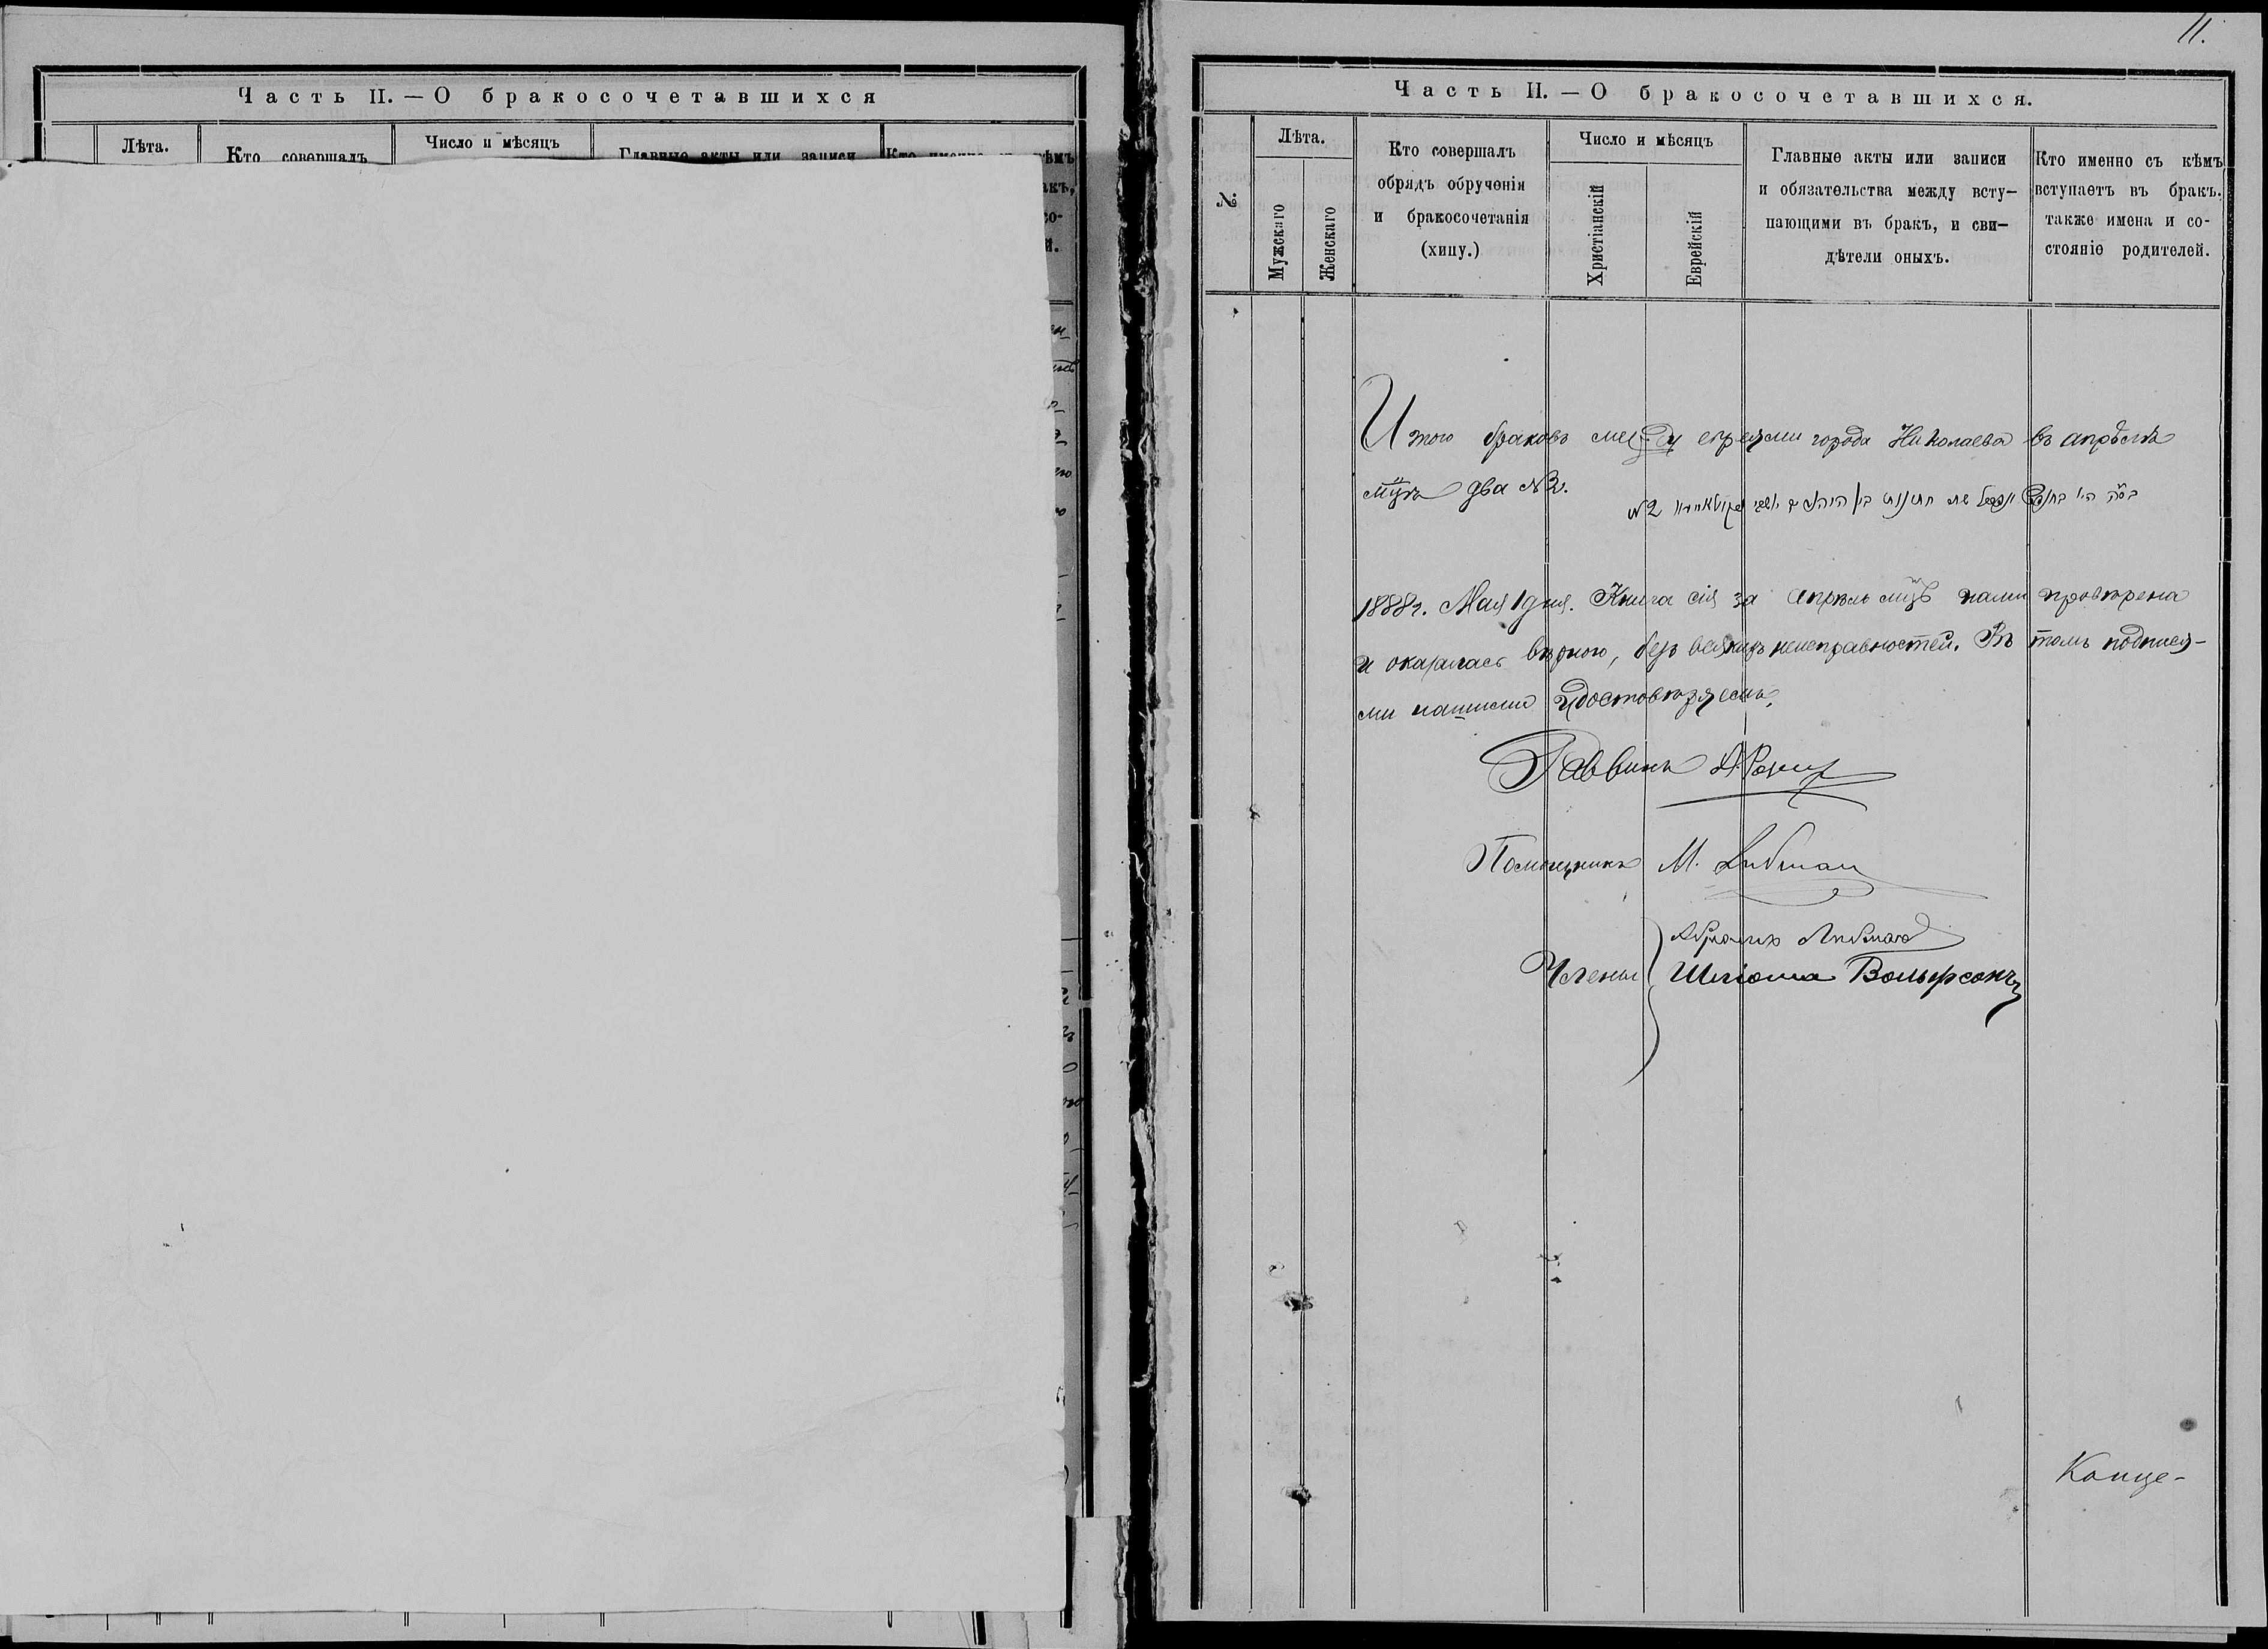 Часть II. — О бракосочетавшихся
Лѣта.
Кто совершалъ
Число и мѣсяцъ
Главные акты или записи
11.
Часть II. — О бракосочетавшихся.
№.
Лѣта.
Мужскаго
Женскаго
Кто совершалъ
обрядъ обрученія
и бракосочетанія
(хипу.)
Число и мѣсяцъ
Христіанскій
Еврейскій
Главные акты или записи
и обязательства между всту-
пающими въ бракъ, и сви-
дѣтели оныхъ.
Кто именно съ кѣмъ
вступаетъ въ бракъ.
также имена и со-
стояніе родителей.
Итого браковъ между евреями города Николаева въ апрѣлѣ
мцѣ два №2.
№2
1888г. Мая 1 дня. Книга сія за Апрѣль мцъ нами провѣрена
и оказалась вѣрною, безъ всякихъ неисправностей. Въ томъ подпися-
ми нашими удостовѣряемъ.
Раввинъ
Помощникъ М. Либман
Абрамъ Либман
Члены Шлiома Вольфсонъ
Конце-